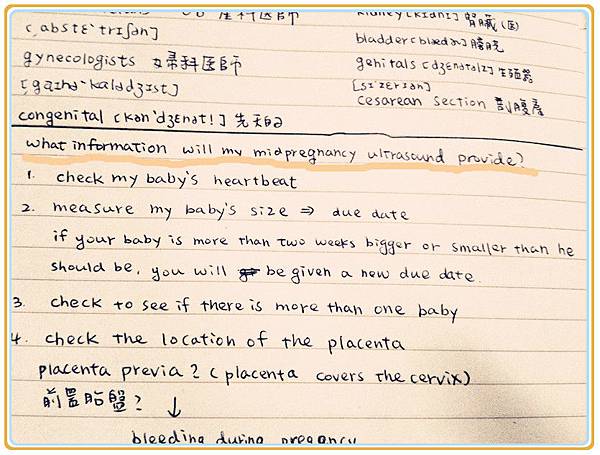 產科医師
kidney [kɪdnɪ] 腎臟(医)
[ˌabstɛˋtrɪʃən]
bladder [blædɚ] 膀胱
gynecologists 婦科医師
genitals [dʒɛnətəlz] 生殖器
[ˌgaɪnəˋkalədʒɪst]
[sɪˋzɛrɪən]
cesarean section 剖腹產
congenital [kənˋdʒɛnətl] 先天的
what information will my midpregnancy ultrasound provide?
1. check my baby's heartbeat
2. measure my baby's size ⇒ due date
if your baby is more than two weeks bigger or smaller than he
should be, you will be given a new due date.
3. check to see if there is more than one baby
4. check the location of the placenta
placenta previa? (placenta covers the cervix)
前置胎盤? ↓
bleeding during pregnancy